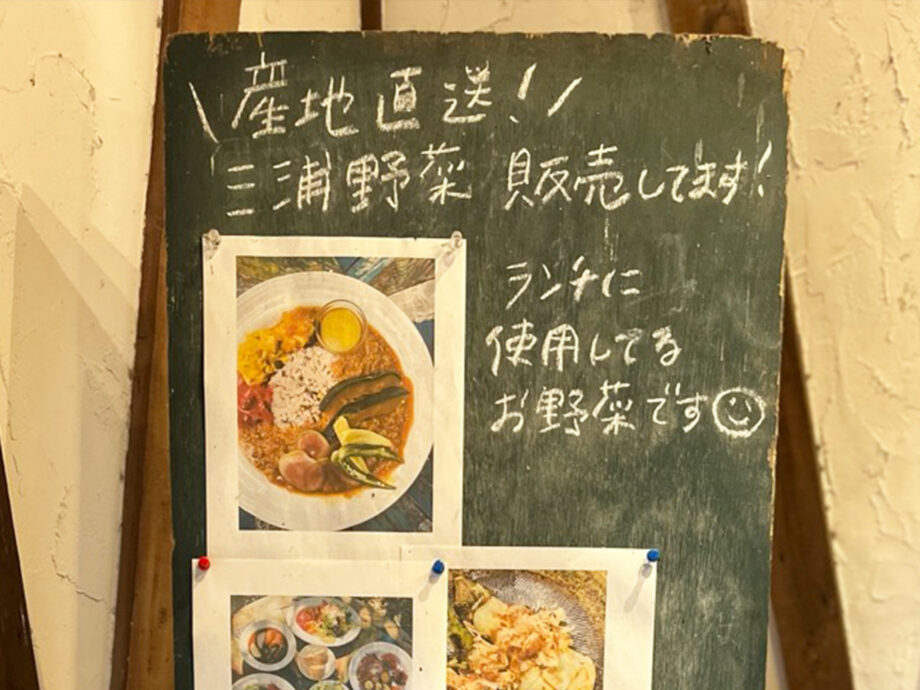 \産地直送!/
三浦野菜 販売してます!
ランチに
使用してる
お野菜です☺